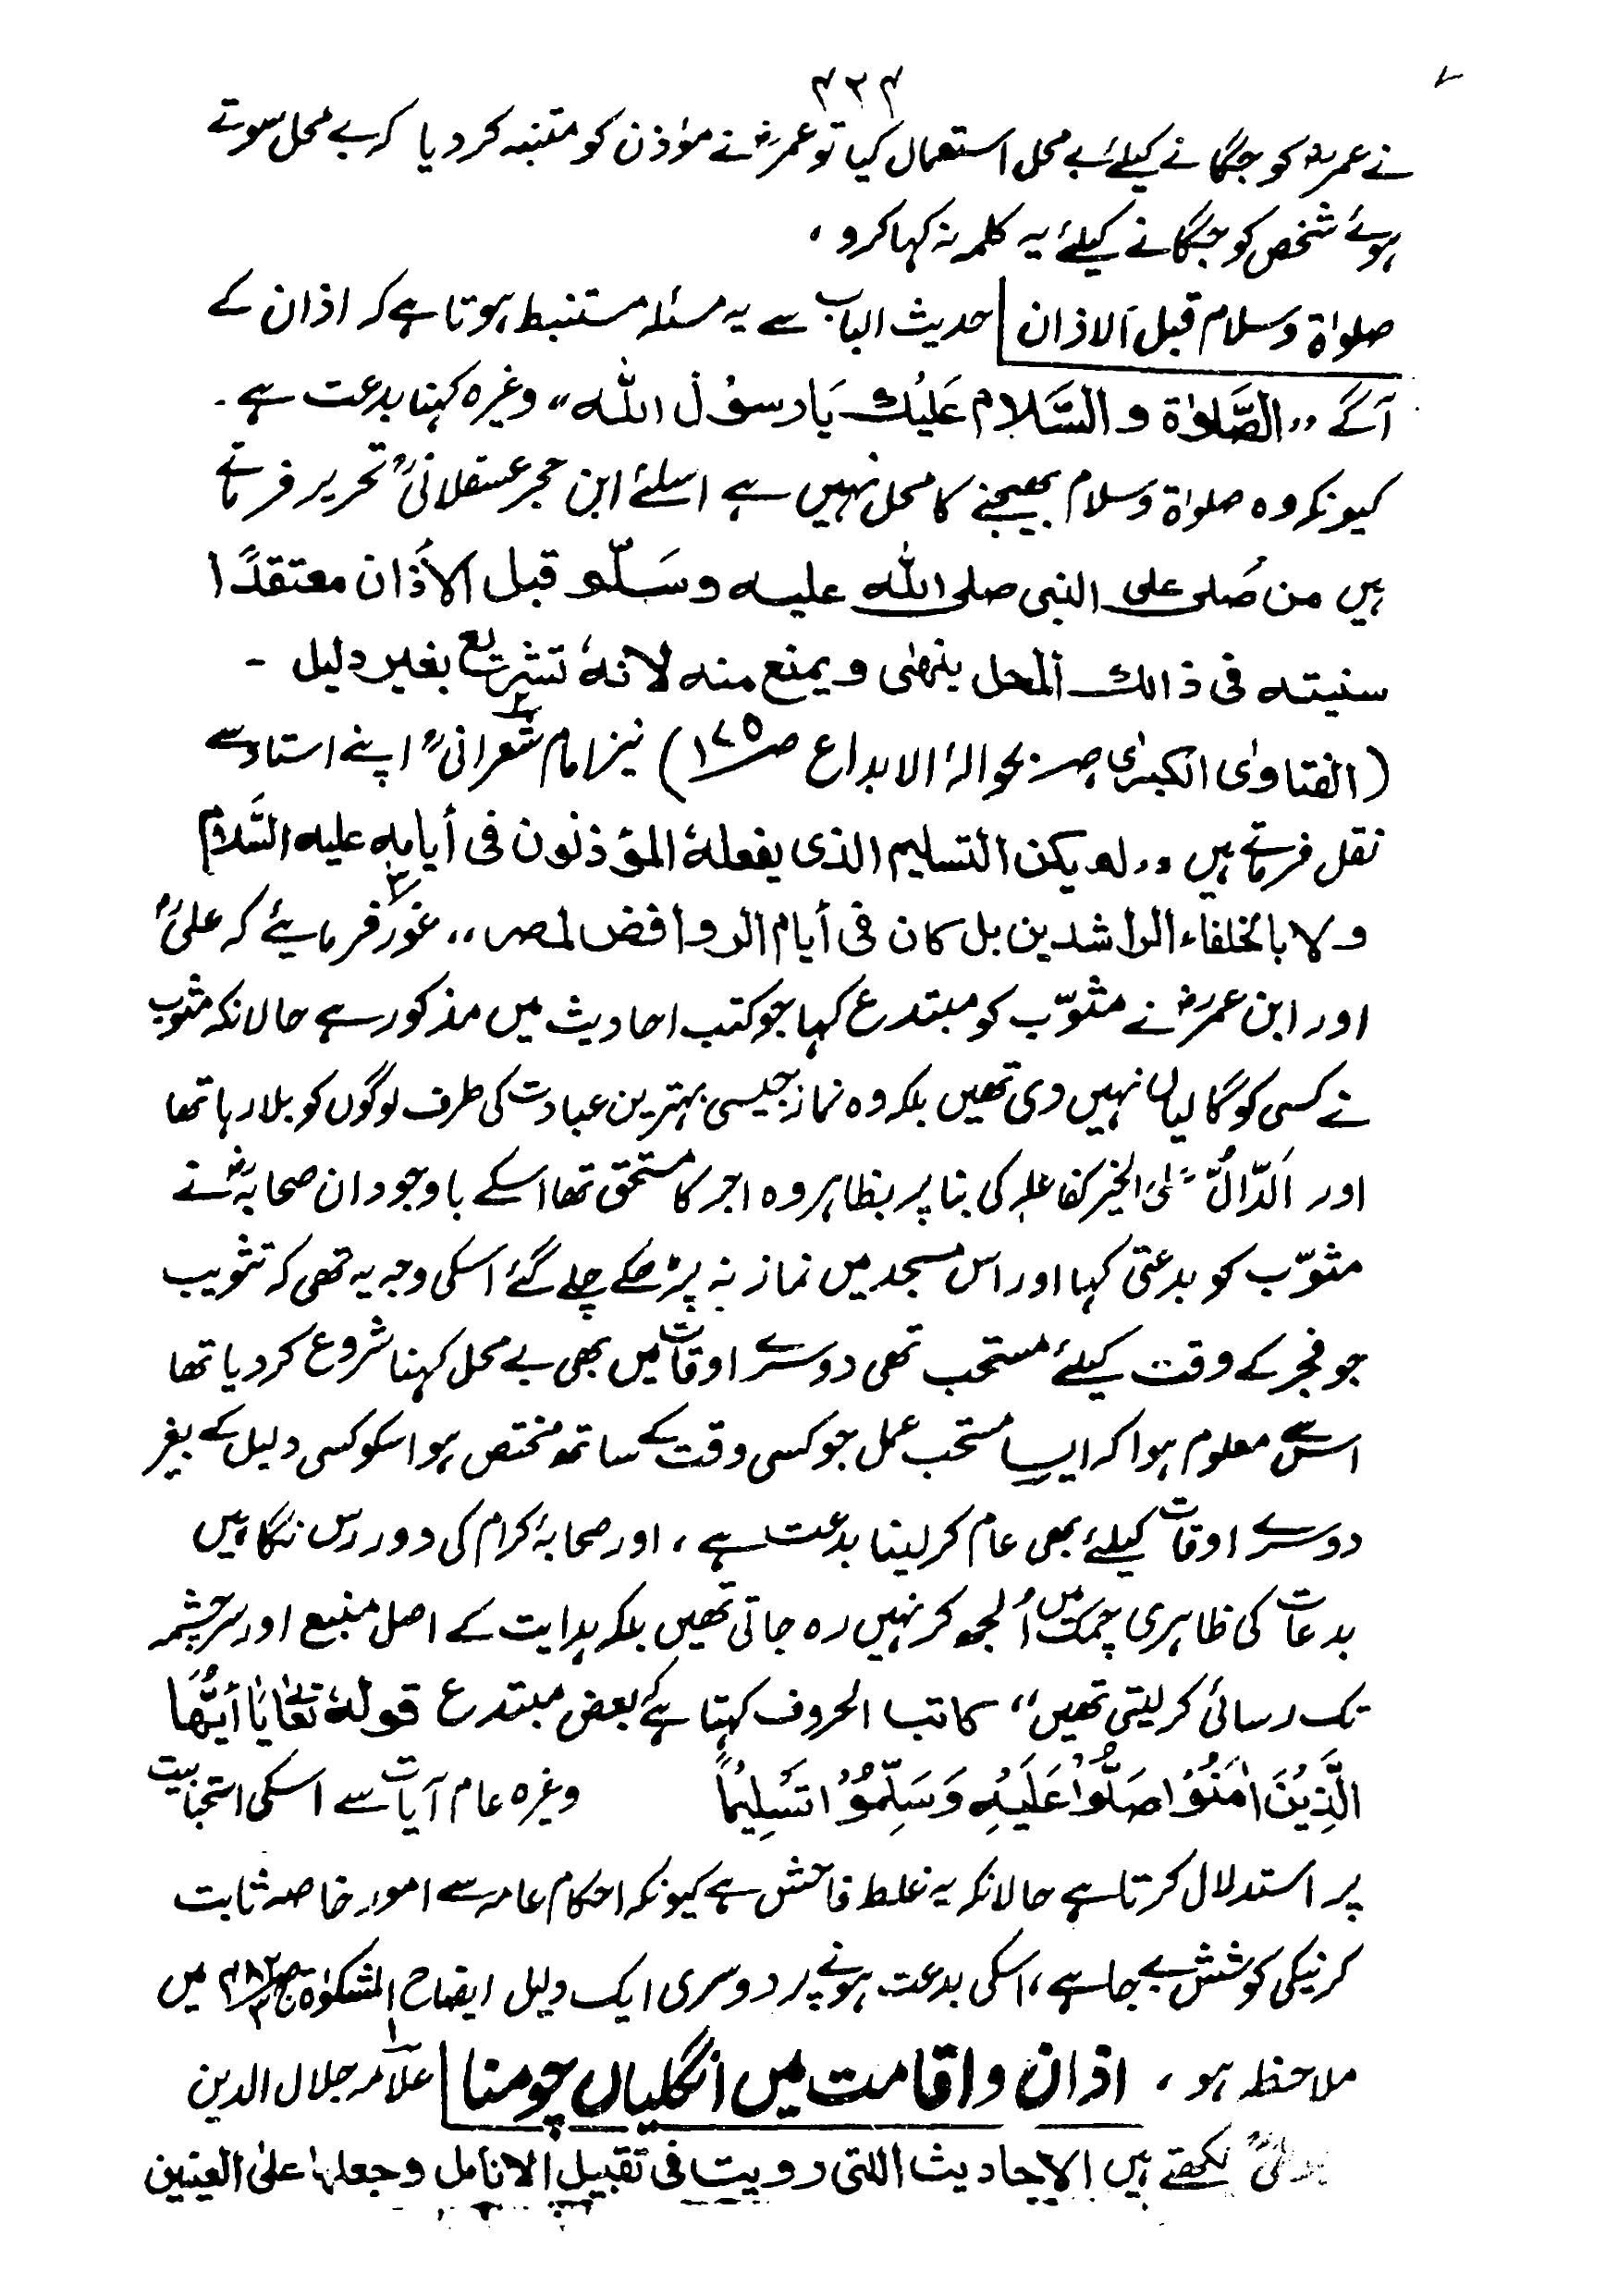 ۴۲۴
نے عمرؓ کو جگانے کیلئے بے محل استعمال کیا تو عمرؓ نے مؤذن کو متنبہ کر دیا کہ بے محل سوتے
ہوئے شخص کو جگانے کیلئے یہ کلمہ نہ کہا کرو ،
صلوٰۃ وسلام قبل الاذان حدیث الباب سے یہ مسئلہ مستنبط ہوتا ہے کہ اذان کے
آگے ,,الصَّلوٰة والسَّلام عَلَيْك يَا رسوْل الله،، وغیرہ کہنا بدعت ہے ۔
کیونکہ وہ صلوٰۃ وسلام بھیجنے کا محل نہیں ہے اسلئے ابن حجر عسقلانیؒ تحریر فرماتے
ہیں من صَلى على النبى صلى الله عليه وسَلّم قبل الأذان معتقدًا
سنيته فى ذالك المحل ينهٰى ويمنع منه لانهٗ تشريع بغير دليل ۔
(الفتاوٰى الكبرٰى بحوالۂ الابداع صـ۱۷۵) نیز امام شعرانیؒ اپنے استاد سے
نقل فرماتے ہیں ,,لم يكن التسليم الذى يفعلهٗ المؤذنون فى أيامه عليه السَّلام
ولا بالخلفاء الراشدين بل كان فى أيام الروافض لمصر،، غور فرمایئے کہ علیؓ
اور ابن عمرؓ نے مثوّب کو مبتدع کہا جو کتب احادیث میں مذکور ہے حالانکہ مثوب
نے کسی کو گالیاں نہیں دی تھیں بلکہ وہ نماز جیسی بہترین عبادت کی طرف لوگوں کو بلا رہا تھا
اور اَلدّالُّ عَلیَ الخیر کفاعلہٖ کی بنا پر بظاہر وہ اجر کا مستحق تھا اسکے باوجود ان صحابہؓ نے
مثوّب کو بدعتی کہا اور اس مسجد میں نماز نہ پڑھکے چلے گئے اسکی وجہ یہ تھی کہ تثویب
جو فجر کے وقت کیلئے مستحب تھی دوسرے اوقات میں بھی بے محل کہنا شروع کر دیا تھا
اس سے معلوم ہوا کہ ایسا مستحب عمل جو کسی وقت کے ساتھ مختص ہو اسکو کسی دلیل کے بغیر
دوسرے اوقات کیلئے بھی عام کر لینا بدعت ہے ، اور صحابۂ کرام کی دور رس نگاہیں
بدعات کی ظاہری چمک میں اُلجھ کر نہیں رہ جاتی تھیں بلکہ ہدایت کے اصل منبع اور سرچشمہ
تک رسائی کر لیتی تھیں،، کاتب الحروف کہتا ہے بعض مبتدع قولهٗ تعَالٰى يَا أيُّهَا
الَّذِيْنَ اٰمَنُوْا صَلُّوْا عَلَيْهِ وَسَلِّمُوْا تَسْلِيْمًا وغیرہ عام آیات سے اسکی استحبابیت
پر استدلال کرتا ہے حالانکہ یہ غلط فاحش ہے کیونکہ احکام عامہ سے امور خاصہ ثابت
کرنیکی کوشش بے جا ہے ، اسکی بدعت ہونے پر دوسری ایک دلیل ایضاح المشکوٰۃ میں
ملاحظہ ہو ، اذان واقامت میں انگلیاں چومنا علّامہ جلال الدین
لکھتے ہیں الاحاديث التى رويت فى تقبيل الانامل وجعلها على العينين